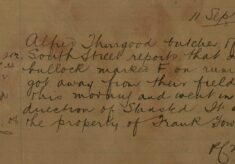 11 Sep
Alfred Thurgood butcher of
South Street reports that a
bullock marked F on rum
got away from their field
this morning and went in
direction of Stansted It
the property of Frank
PC